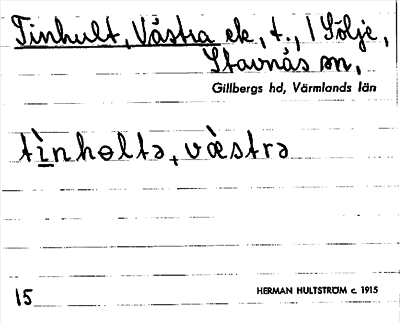 Tinhult, Västra ek, t., / Sölje,
Stavnäs sn,
Gillbergs hd, Värmlands län
tìnhɵltə, væ̀stra
15
HERMAN HULTSTRÖM c. 1915